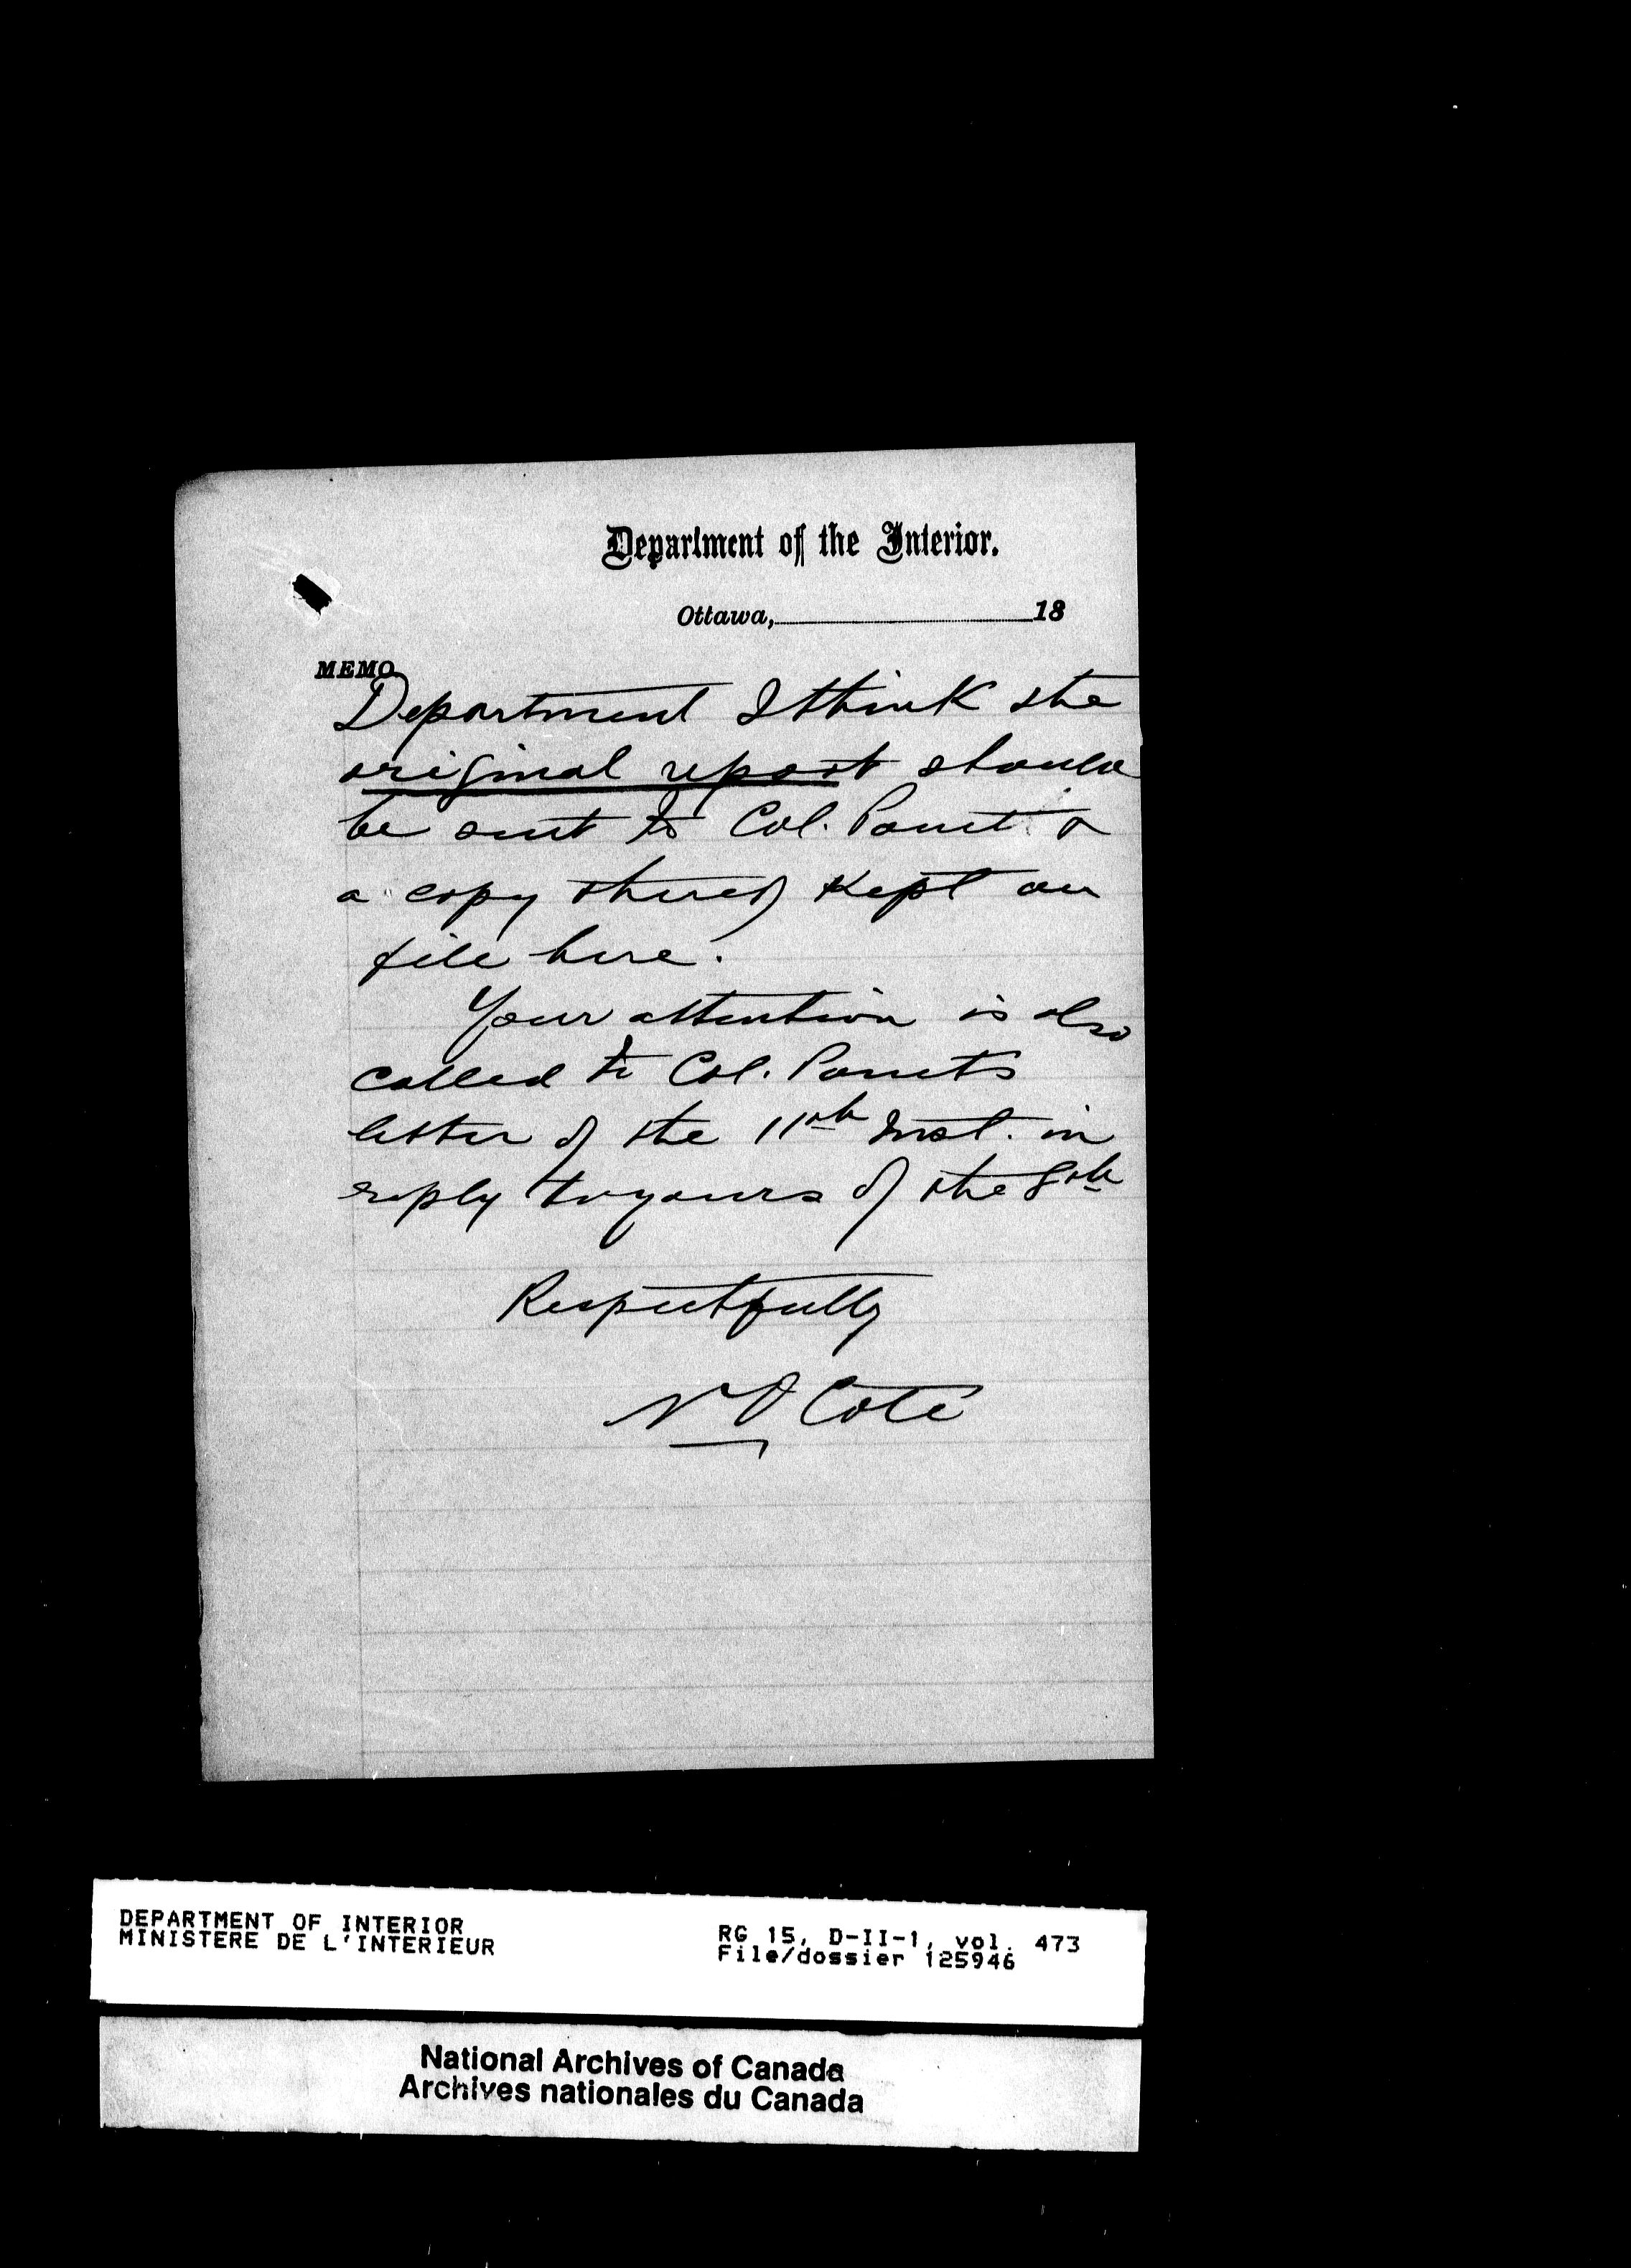 Department of the Interior.
Ottawa, 18
MEMO
Department I think the
original report should
be sent to Col. Panet &
a copy thereof kept on
file here.
Your attention is also
called to Col. Panets
letter of the 11th Inst. in
reply to yours of the 8th
Respectfully
N O Coté
DEPARTMENT OF INTERIOR
MINISTERE DE L'INTERIEUR
RG 15, D-II-1, vol. 473
File/dossier 125946
National Archives of Canada
Archives nationales du Canada